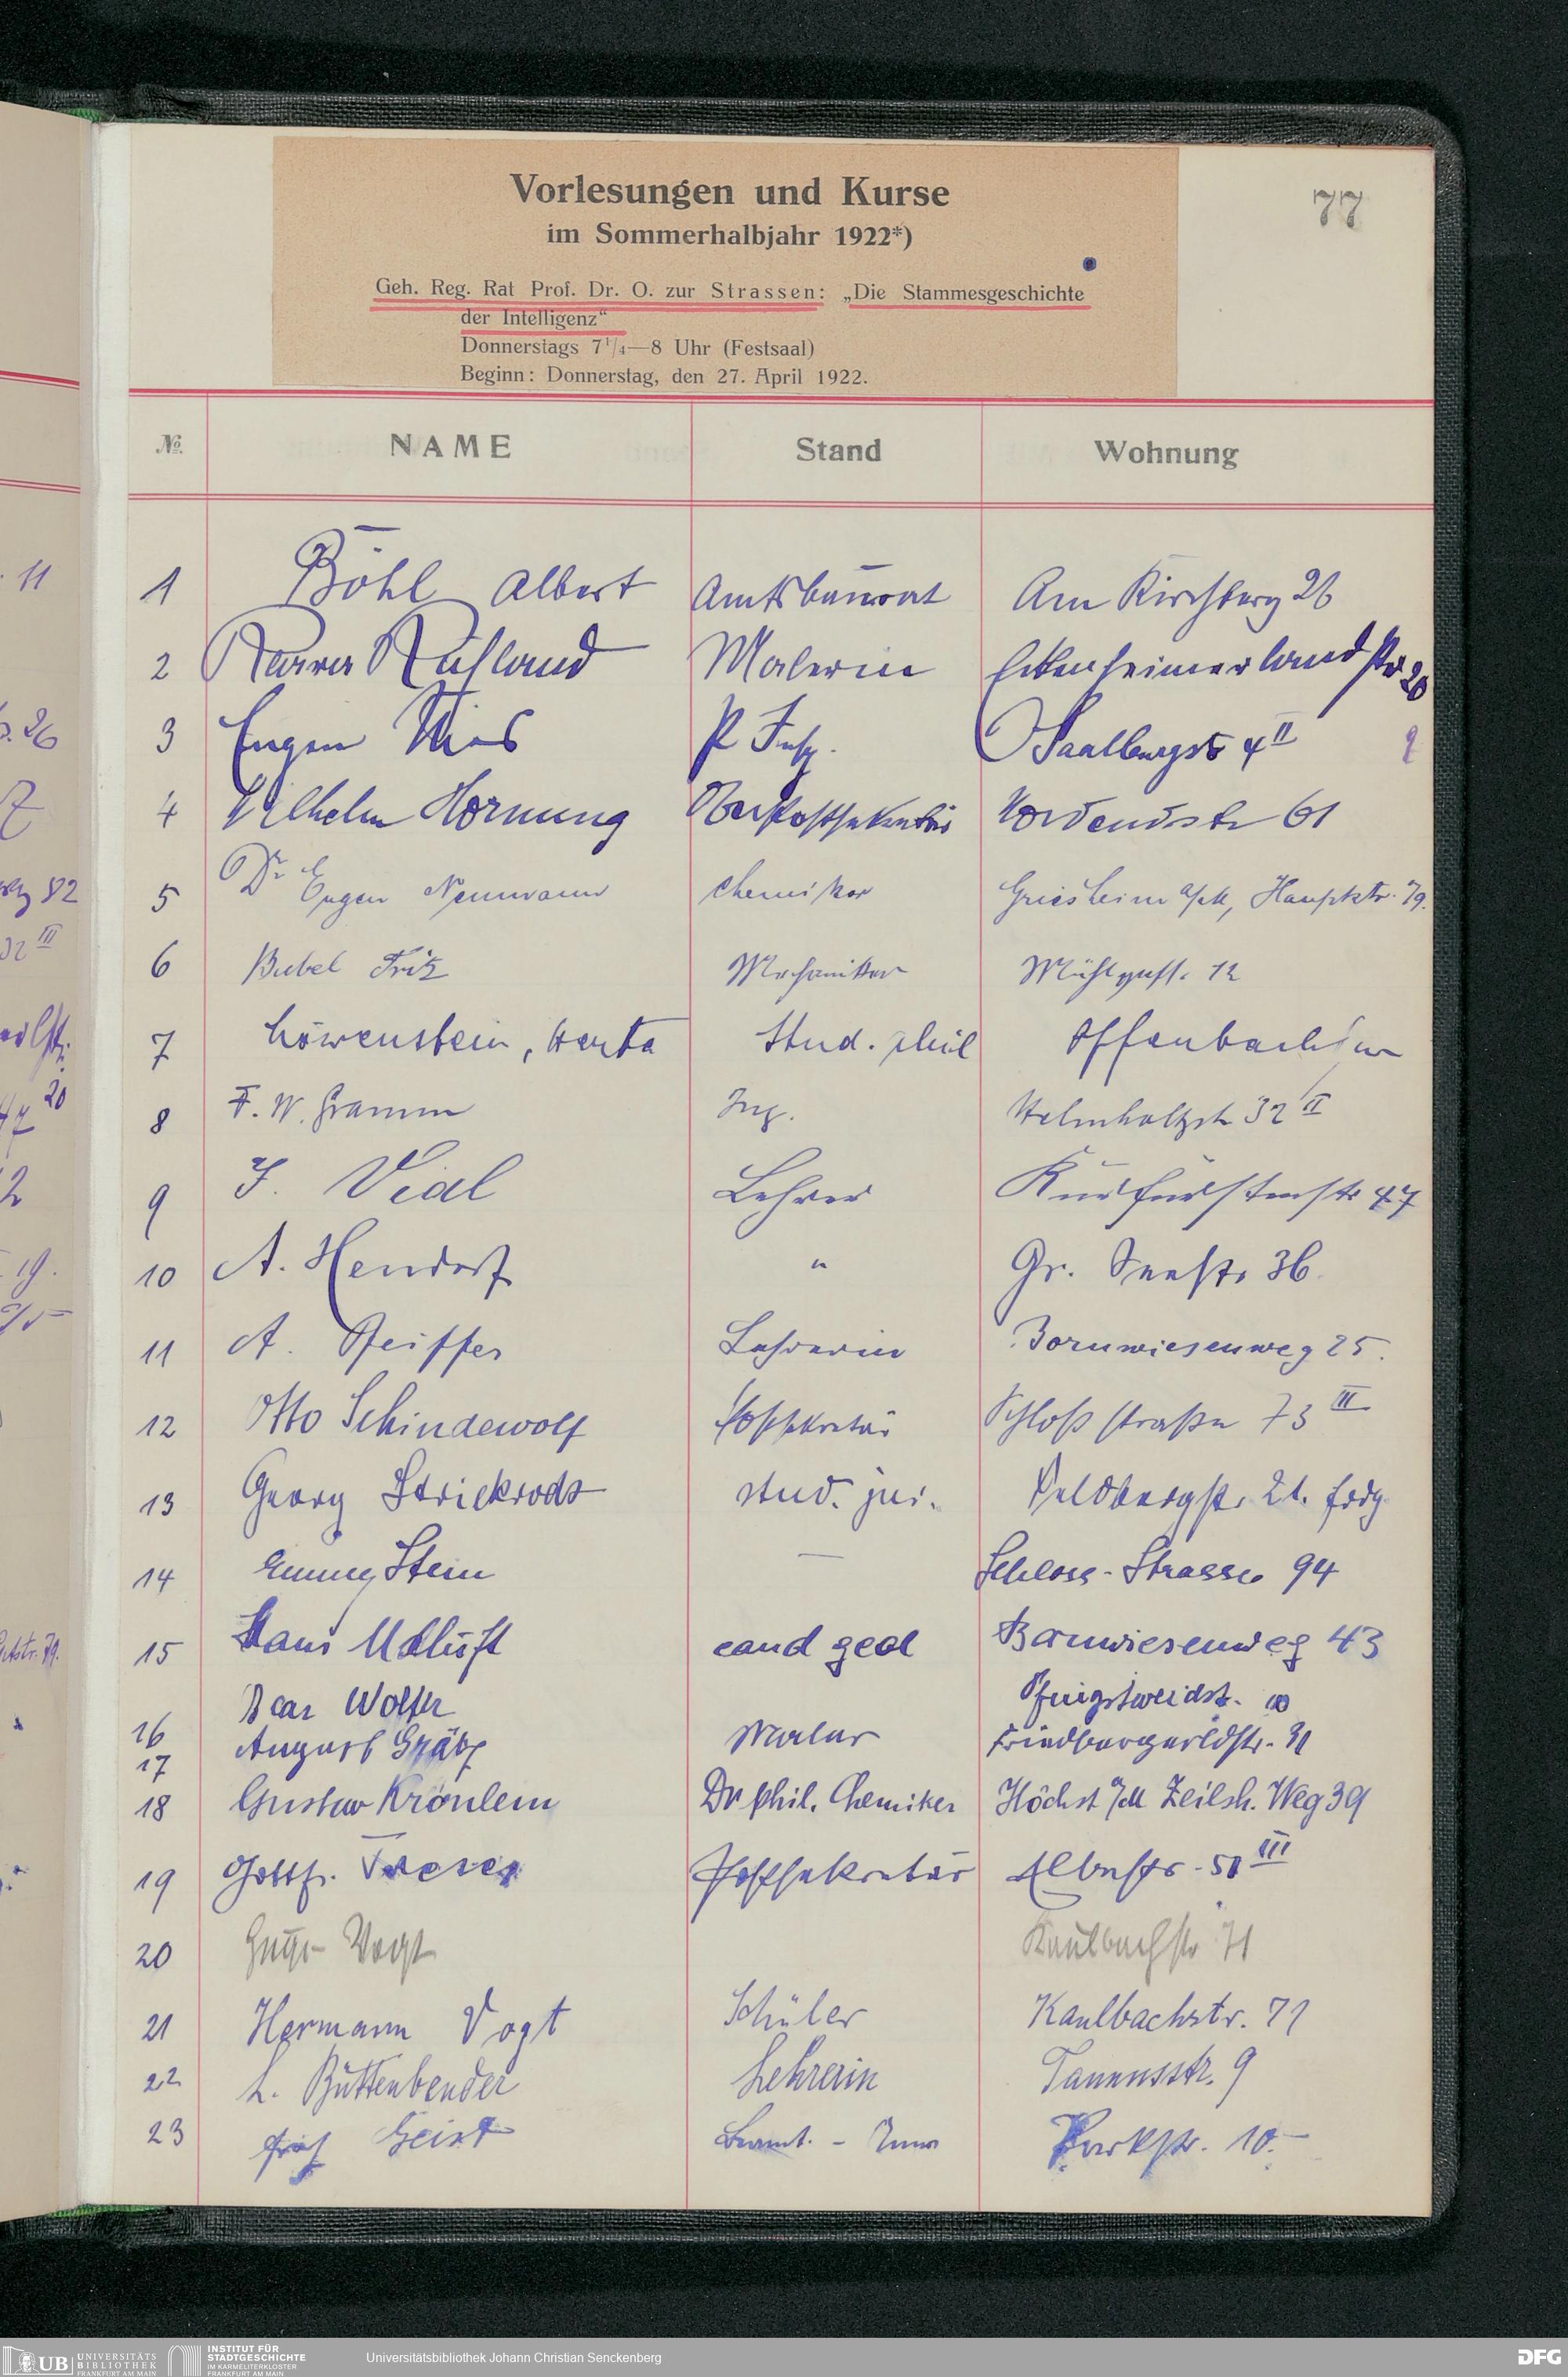 77
Vorlesungen und Kurse
im Sommerhalbjahr 1922*)
Geh. Reg. Rat Prof. Dr. O. zur Strassen: „Die Stammesgeschichte
der Intelligenz“
Donnerstags 7¹/₄—8 Uhr (Festsaal)
Beginn: Donnerstag, den 27. April 1922.
№ NAME Stand Wohnung
1 Böhl Albert Amtsbaurat Am Kirchberg 26
2 Ruhland Malerin Eckenheimerlandstr 20
3 Eugen P Insp. Saalburgstr 4 II
4 Wilhelm Hornung Oberpostsekretär Nordendstr 61
5 Dr Eugen Neumann Chemiker Griesheim a/M, Hauptstr. 79.
6 Bubel Fritz Mechaniker Mühlgass. 12
7 Löwenstein, Herta Stud. phil Offenbach
8 F. W. Gramm Ing. Helmholtzstr 32 II
9 J. Vial Lehrer Kurfürstenstr 47
10 A. Hendorf " Gr. Seestr 36
11 A. Pfeiffer Lehrerin Bornwiesenweg 25.
12 Otto Schindewolf Postsekretär Schloßstraße 73 III
13 Georg Strickrodt stud. jur. Feldbergstr. 21.
14 Emmy Stein — Schloss-Strasse 94
15 Hans cand geol Bornwiesenweg 43
16 Wolfer Pfingstweidstr. 10
17 August Gräb Maler Friedbergerldstr. 31
18 Gustav Krönlein Dr phil. Chemiker Höchst a/M Zeilsh. Weg 39
19 Gottfr. Treser Postsekretär Elbestr. 51 III
20 Vogt Kaulbachstr 71
21 Hermann Vogt Schüler Kaulbachstr. 71
22 L. Büttenbender Lehrerin Taunusstr. 9
23 Geist Beamt. - Parkstr. 10.-
11
26
7
82
32 III
20
47
2
19.
79.
UB UNIVERSITÄTS
BIBLIOTHEK
FRANKFURT AM MAIN
INSTITUT FÜR
STADTGESCHICHTE
IM KARMELITERKLOSTER
FRANKFURT AM MAIN
Universitätsbibliothek Johann Christian Senckenberg
DFG